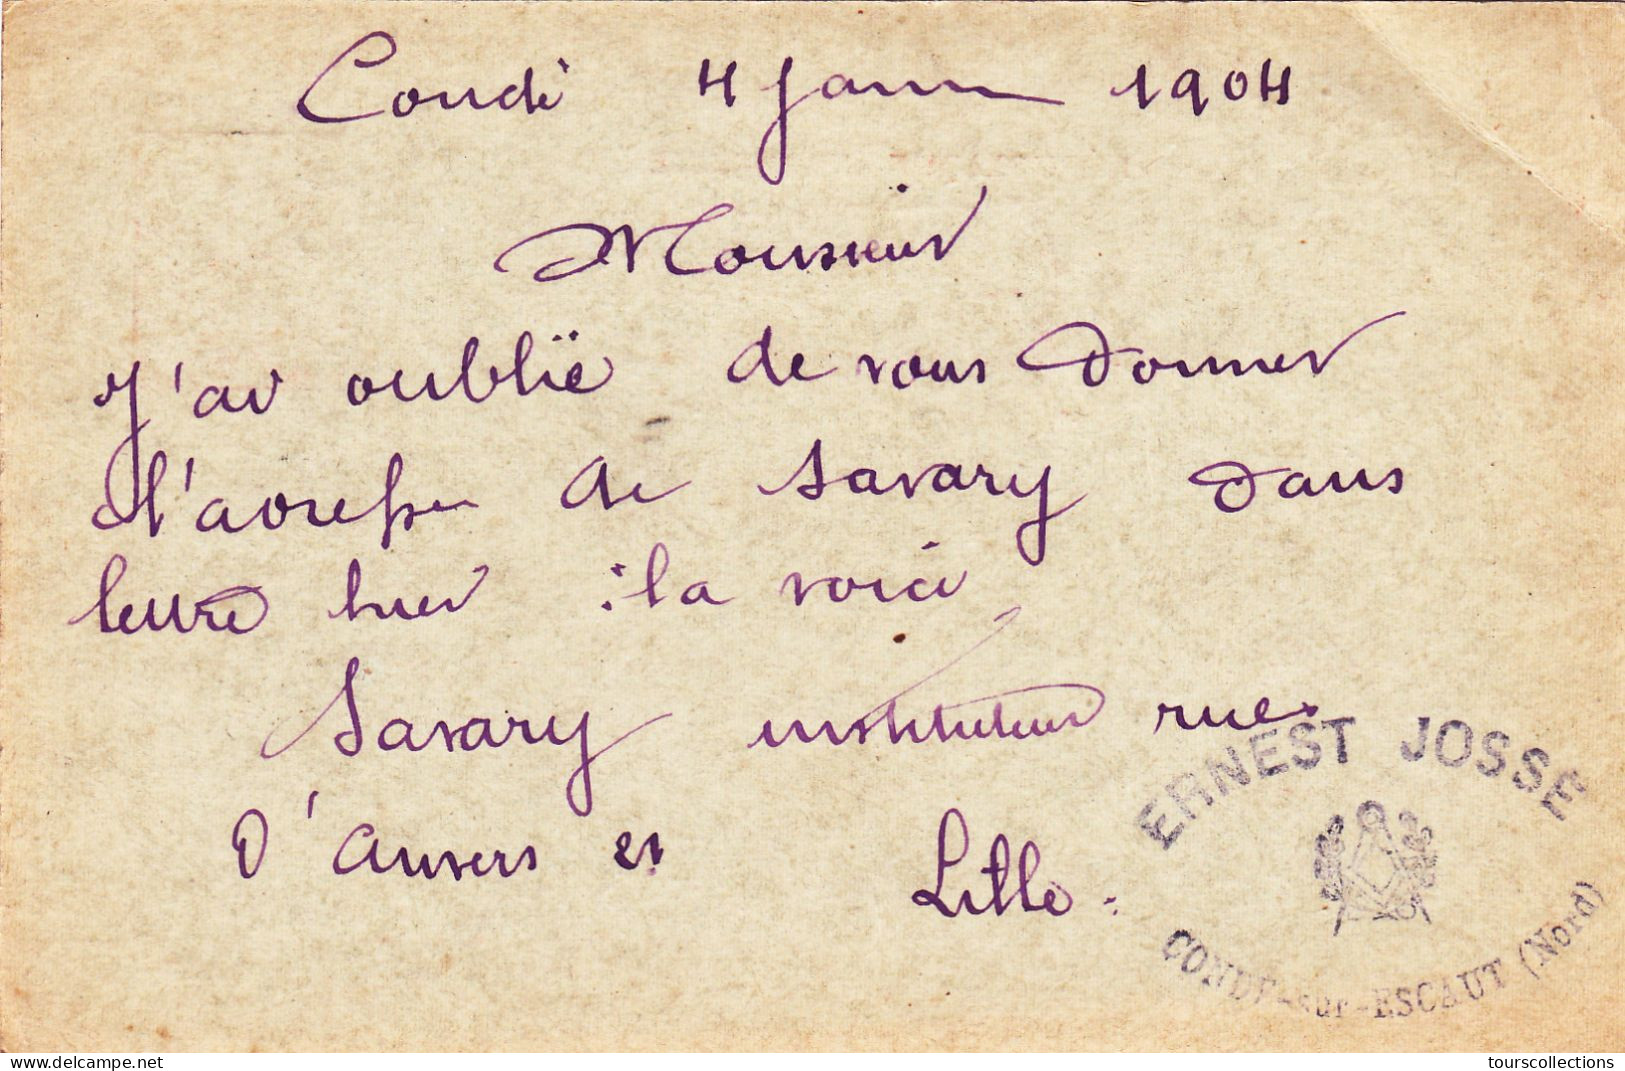 Condé 4 Janvier 1904
Monsieur
J'ai oublié de vous donner
l'adresse de Savary dans
lettre hier : la voici
Savary instituteur rue
d'Anvers 21
Lille.
ERNEST JOSSE
CONDE-sur-ESCAUT (Nord)
delcampe.net
tourscollections